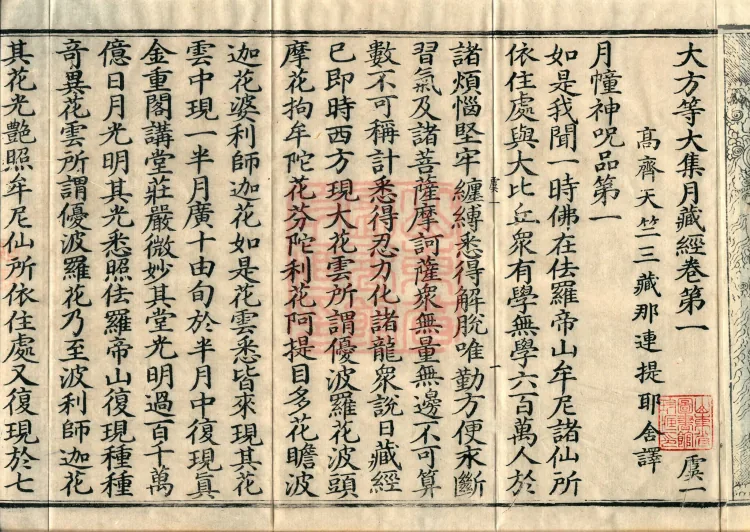 大方等大集月藏經卷第一
虞一
高齊天竺三藏那連提耶舍譯
月幢神呪品第一
如是我聞一時佛在佉羅帝山牟尼諸仙所
依住處與大比丘眾有學無學六百萬人於
諸煩惱堅牢纏縛悉得解脫唯勤方便永斷
虞一
一
習氣及諸菩薩摩訶薩眾無量無邊不可算
數不可稱計悉得忍力化諸龍眾說日藏經
已即時西方現大花雲所謂優波羅花波頭
摩花拘牟陀花芬陀利花阿提目多花瞻波
迦花婆利師迦花如是花雲悉皆來現其花
雲中現一半月廣十由旬於半月中復現真
金重閣講堂莊嚴微妙其堂光明過百千萬
億日月光明其光悉照佉羅帝山復現種種
奇異花雲所謂優波羅花乃至波利師迦花
其花光艷照牟尼仙所依住處又復現於七